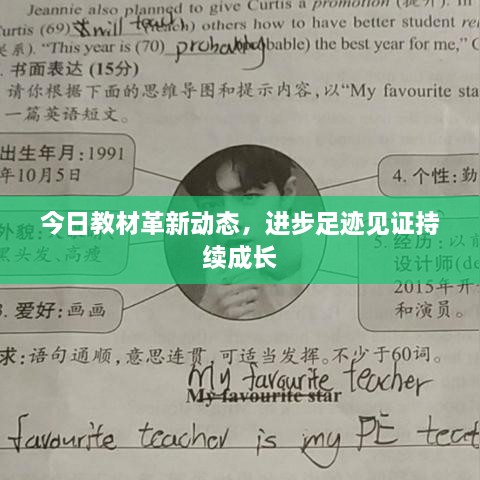 Jeannie also planned to give Curtis a promotion (提升). In
Curtis (69) will teach (teach) others how to have better student
关系). "This year is (70) probably (probable) the best year for me," C
. 书面表达 (15分)
请你根据下面的思维导图和提示内容,以"My favourite sta
一篇英语短文。
出生年月:1991
年10月5日
4. 个性:勤
今日教材革新动态，进步足迹见证持
续成长
外貌:
黑头发、高瘦
5. 经历:以前
设计师(de
2015年开
和演员。
3. 爱好:画画
求:语句通顺,意思连贯,可适当发挥。不少于60词。
My favourite teacher
My favourite star
favourite teacher is my PE teac